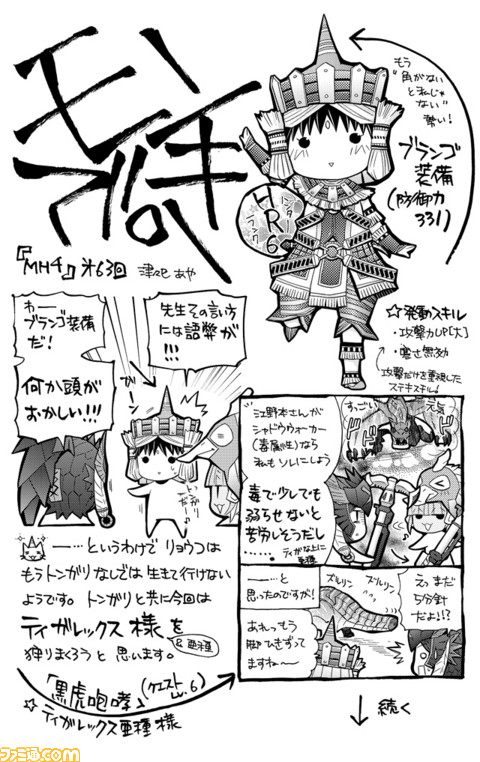 モンハン
『MH4』オ63回
津々巳 あや
もう
"角がない
と私じゃ
ない"
勢い!
ブランゴ
装備
(防御力
331)
ハンター
ランク
HR6
☆発動スキル
・攻撃力UP[大]
・寒さ無効
攻撃だけを重視した
ステキスキル!
わーー
ブランゴ装備
だ!
何か頭が
おかしい!!!
先生その言い方
には語弊が
!!!
びーン
トンガリ
だー
ー…というわけでリョウコは
もうトンガリなしでは生きて行けない
ようです。トンガリと共に今回は
ティガレックス様を
&亜種
狩りまくろうと思います。
「黒虎咆哮」(クエスト
Lv.6)
☆ティガレックス亜種様
江野本さんが
シャドウウォーカー
(毒属性)なら
私もソレにしよう
すっごい
元気
毒で少しでも
弱らせないと
苦労しそうだし
……。
ティガな上に
亜種
ー…と
思ったのですが!
ズルリン
ズルリン
えっまだ
5分針
だよ!!?
あれっもう
脚ひきずって
ますね〜
↓続く
ファミ通.com